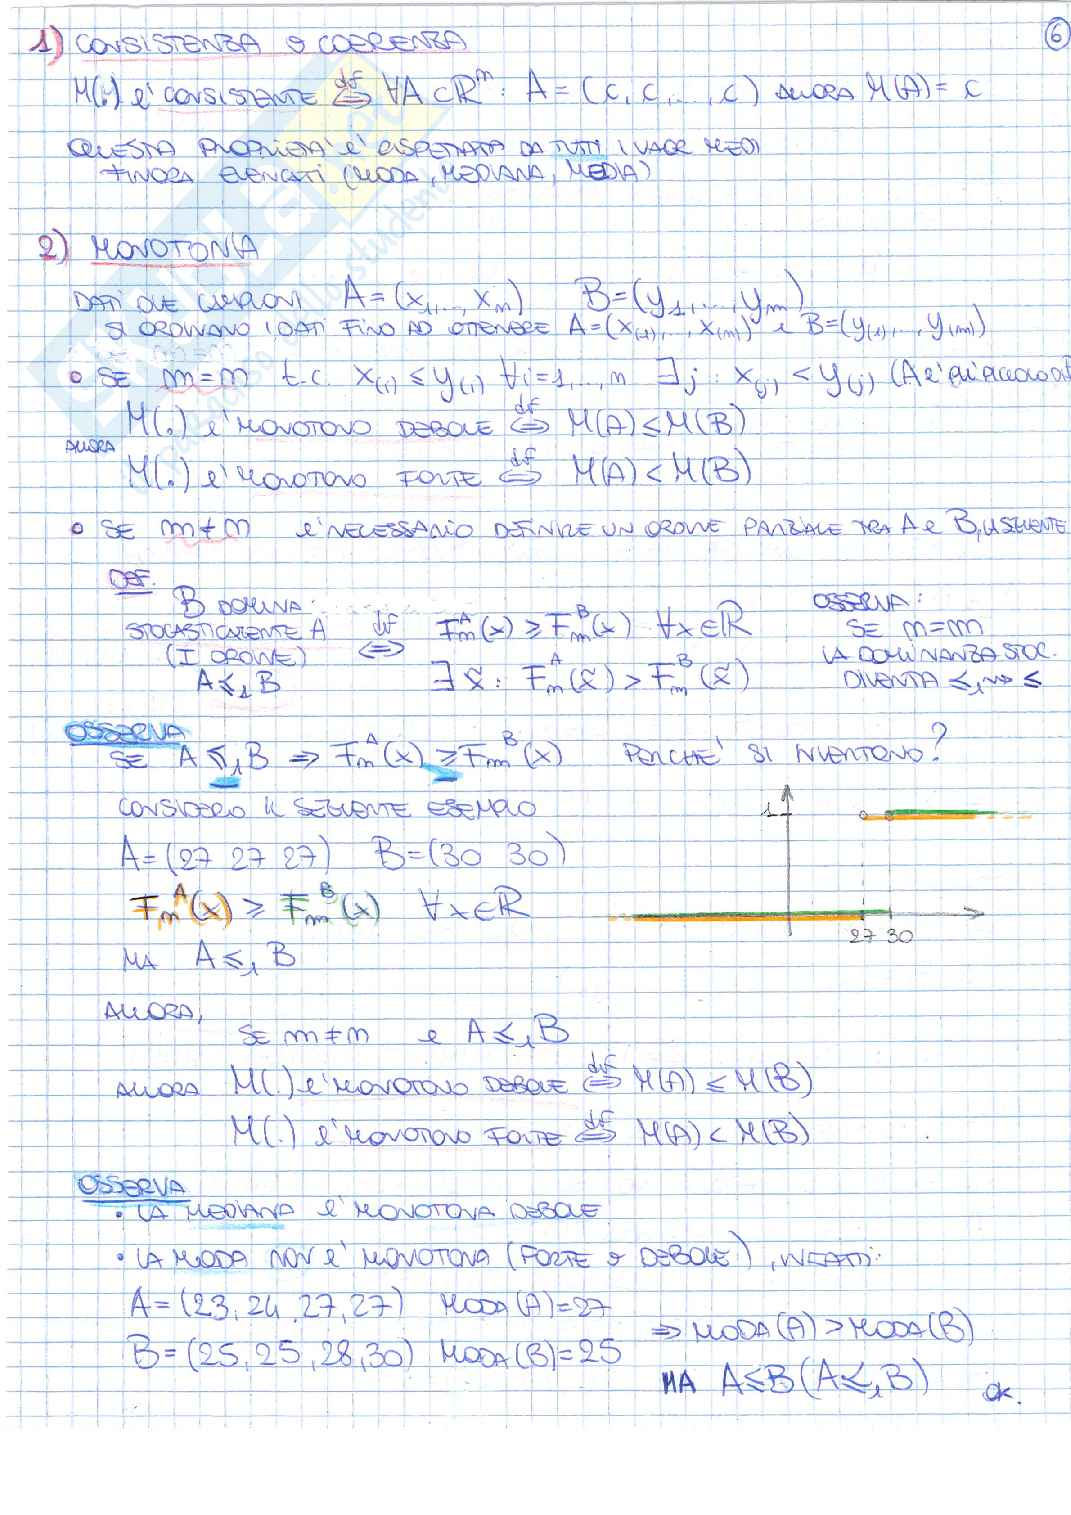 6
1) CONSISTENZA o COERENZA
M(.) è CONSISTENTE ⇔ df ∀A⊂ℝⁿ : A = (c, c, ..., c) ALLORA M(A) = c
QUESTA PROPRIETÀ È RISPETTATA DA TUTTI I VALORI MEDI
FINORA ELENCATI (MODA, MEDIANA, MEDIA)
2) MONOTONIA
DATI DUE CAMPIONI A = (x₁, ..., xₙ) B = (y₁, ..., yₘ)
SI ORDINANO I DATI FINO AD OTTENERE A = (x₍₁₎, ..., x₍ₙ₎) e B = (y₍₁₎, ..., y₍ₘ₎)
• SE m = n t.c. x₍ᵢ₎ ≤ y₍ᵢ₎ ∀i = 1, ..., n ∃j : x₍ⱼ₎ < y₍ⱼ₎ (A è più piccolo di
M(.) è MONOTONO DEBOLE ⇔ df M(A) ≤ M(B)
ALLORA
M(.) è MONOTONO FORTE ⇔ df M(A) < M(B)
• SE m ≠ n è NECESSARIO DEFINIRE UN ORDINE PARZIALE TRA A e B, IL SEGUENTE
DEF.
B DOMINA
STOCASTICAMENTE A ⇔ df Fₙᴬ(x) ≥ Fₘᴮ(x) ∀x∈ℝ
(I ORDINE)
A ≤₁ B ∃ x̃ : Fₙᴬ(x̃) > Fₘᴮ(x̃)
OSSERVA:
SE n = m
LA DOMINANZA STOC.
DIVENTA ≤₁ ⇝ ≤
OSSERVA
SE A ≤₁ B ⇒ Fₙᴬ(x) ≥ Fₘᴮ(x) PERCHÈ SI INVERTONO?
CONSIDERO IL SEGUENTE ESEMPIO
A = (27 27 27) B = (30 30)
Fₙᴬ(x) ≥ Fₘᴮ(x) ∀x∈ℝ
MA A ≤₁ B
1
27 30
ALLORA,
SE m ≠ n e A ≤₁ B
ALLORA M(.) è MONOTONO DEBOLE ⇔ df M(A) ≤ M(B)
M(.) è MONOTONO FORTE ⇔ df M(A) < M(B)
OSSERVA
• LA MEDIANA è MONOTONA DEBOLE
• LA MODA NON è MONOTONA (FORTE o DEBOLE), INFATTI:
A = (23, 24, 27, 27) MODA(A) = 27
B = (25, 25, 28, 30) MODA(B) = 25
⇒ MODA(A) > MODA(B)
MA A ≤ B (A ≤₁ B) ok.